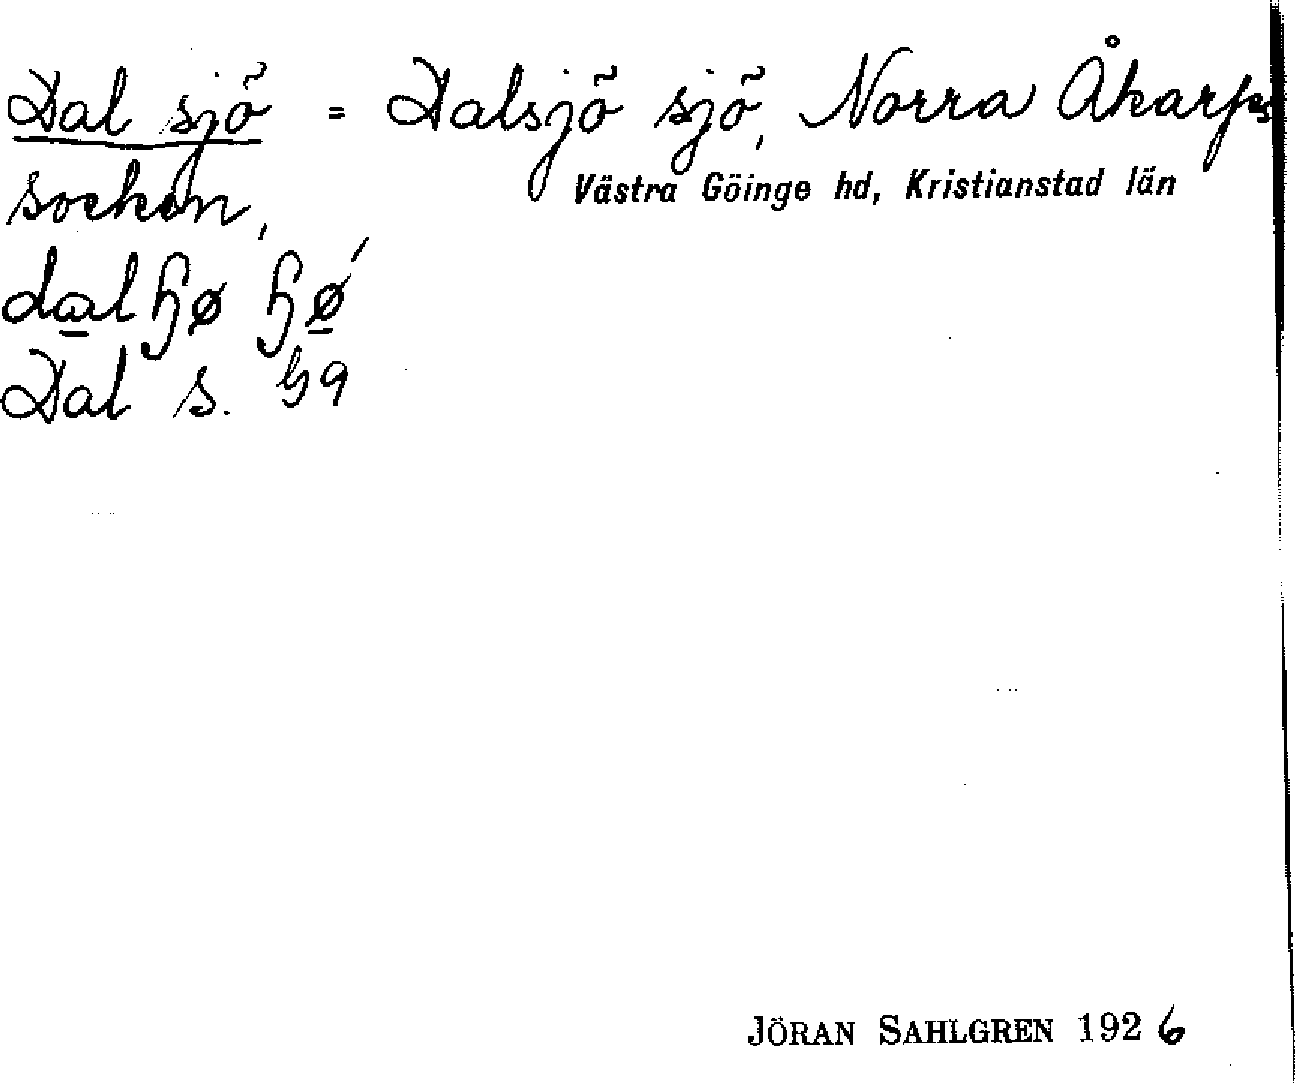 Dal sjö = Dalsjö sjö, Norra Åkarps
socken,
Västra Göinge hd, Kristianstad län
dalɧø ɧǿ
Dal s. ɧq
JÖRAN SAHLGREN 1926